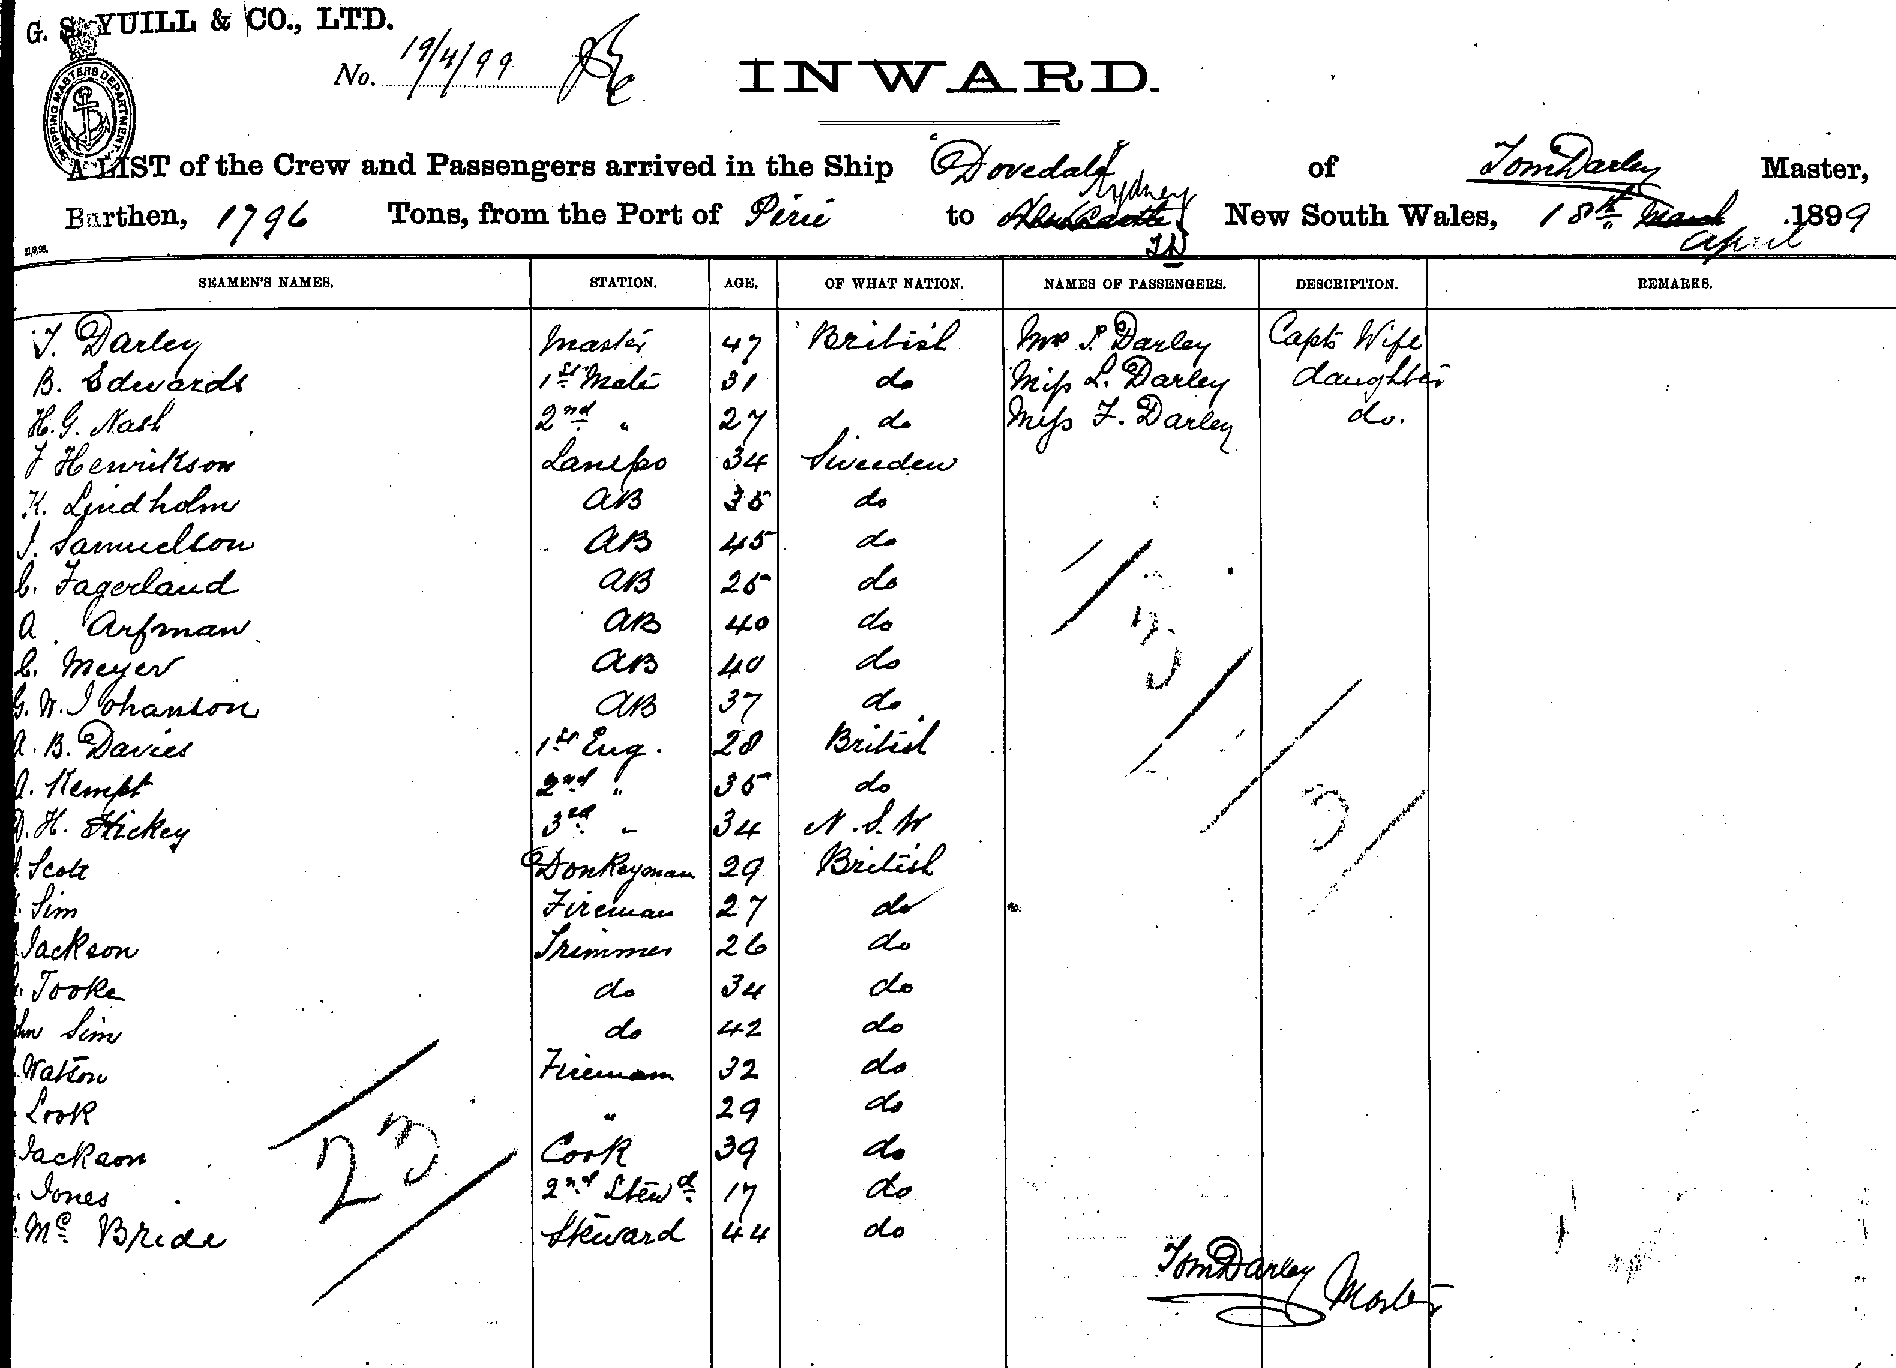 G. S. YUILL & CO., LTD.
No. 19/4/99
INWARD.
SHIPPING MASTERS DEPARTMENT
A LIST of the Crew and Passengers arrived in the Ship "Dovedale" of Tom Darley Master,
Burthen, 1796 Tons, from the Port of Pirie to Newcastle Sydney New South Wales, 18th March April 1899
T D
SEAMEN'S NAMES. STATION. AGE. OF WHAT NATION. NAMES OF PASSENGERS. DESCRIPTION. REMARKS.
T. Darley Master 47 British Mrs S. Darley Capts Wife
B. Edwards 1st Mate 31 do Miss L. Darley daughter
H. G. Nash 2nd " 27 do Miss F. Darley do.
F Henrikson 34 Sweeden
K. Lindholm AB 35 do
J. Samuelson AB 45 do
C. Fagerland AB 25 do
A Arfman AB 40 do
C. Meyer AB 40 do
G. W. Johanson AB 37 do
A. B. Davies 1st Eng. 28 British
A. Kempt 2nd " 35 do
D. H. Hickey 3rd " 34 N. S. W
Scott Donkeyman 29 British
Sim Fireman 27 do
Jackson Trimmer 26 do
Tooke do 34 do
Sim do 42 do
Watson Fireman 32 do
Look " 29 do
Jackson Cook 39 do
Jones 2nd Stewd 17 do
Mc Bride Steward 44 do
3
3
23
Tom Darley Master